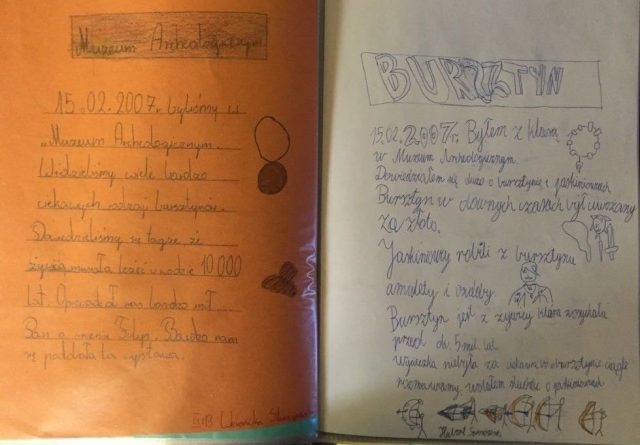 Muzeum Archeologicznym
15.02.2007r. byliśmy w
„Muzeum Archeologicznym.
Widzieliśmy wiele bardzo
ciekawych rodzaji bursztynów.
że
leżeć w wodzie 10 000
lat. Opowiadał nas bardzo mił...
Pan o imieniu Filip. Bardzo nam
się ta wystawa.
III B Weronika
BURSZTYN
15.02.2007r. Byłem z klasą
w Muzeum Archeologicznym.
Dowiedziałem się dużo o bursztynie i jaskiniowcach
Bursztyn w dawnych czasach był uważany
za złoto.
Jaskiniowcy robili z bursztynu
amulety i ozdoby.
Bursztyn jest z żywicy która
przed ok. 5 mil lat.
Wycieczka niebyła za udana w o bursztynie ciągle
słuchać o jaskiniowcach